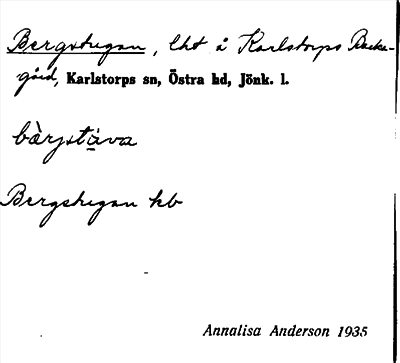 Bergstugan, lht å Karlstorps Backe-
gård, Karlstorps sn, Östra hd, Jönk. l.
bàrjstáva
Bergstugan kb
Annalisa Anderson 1935